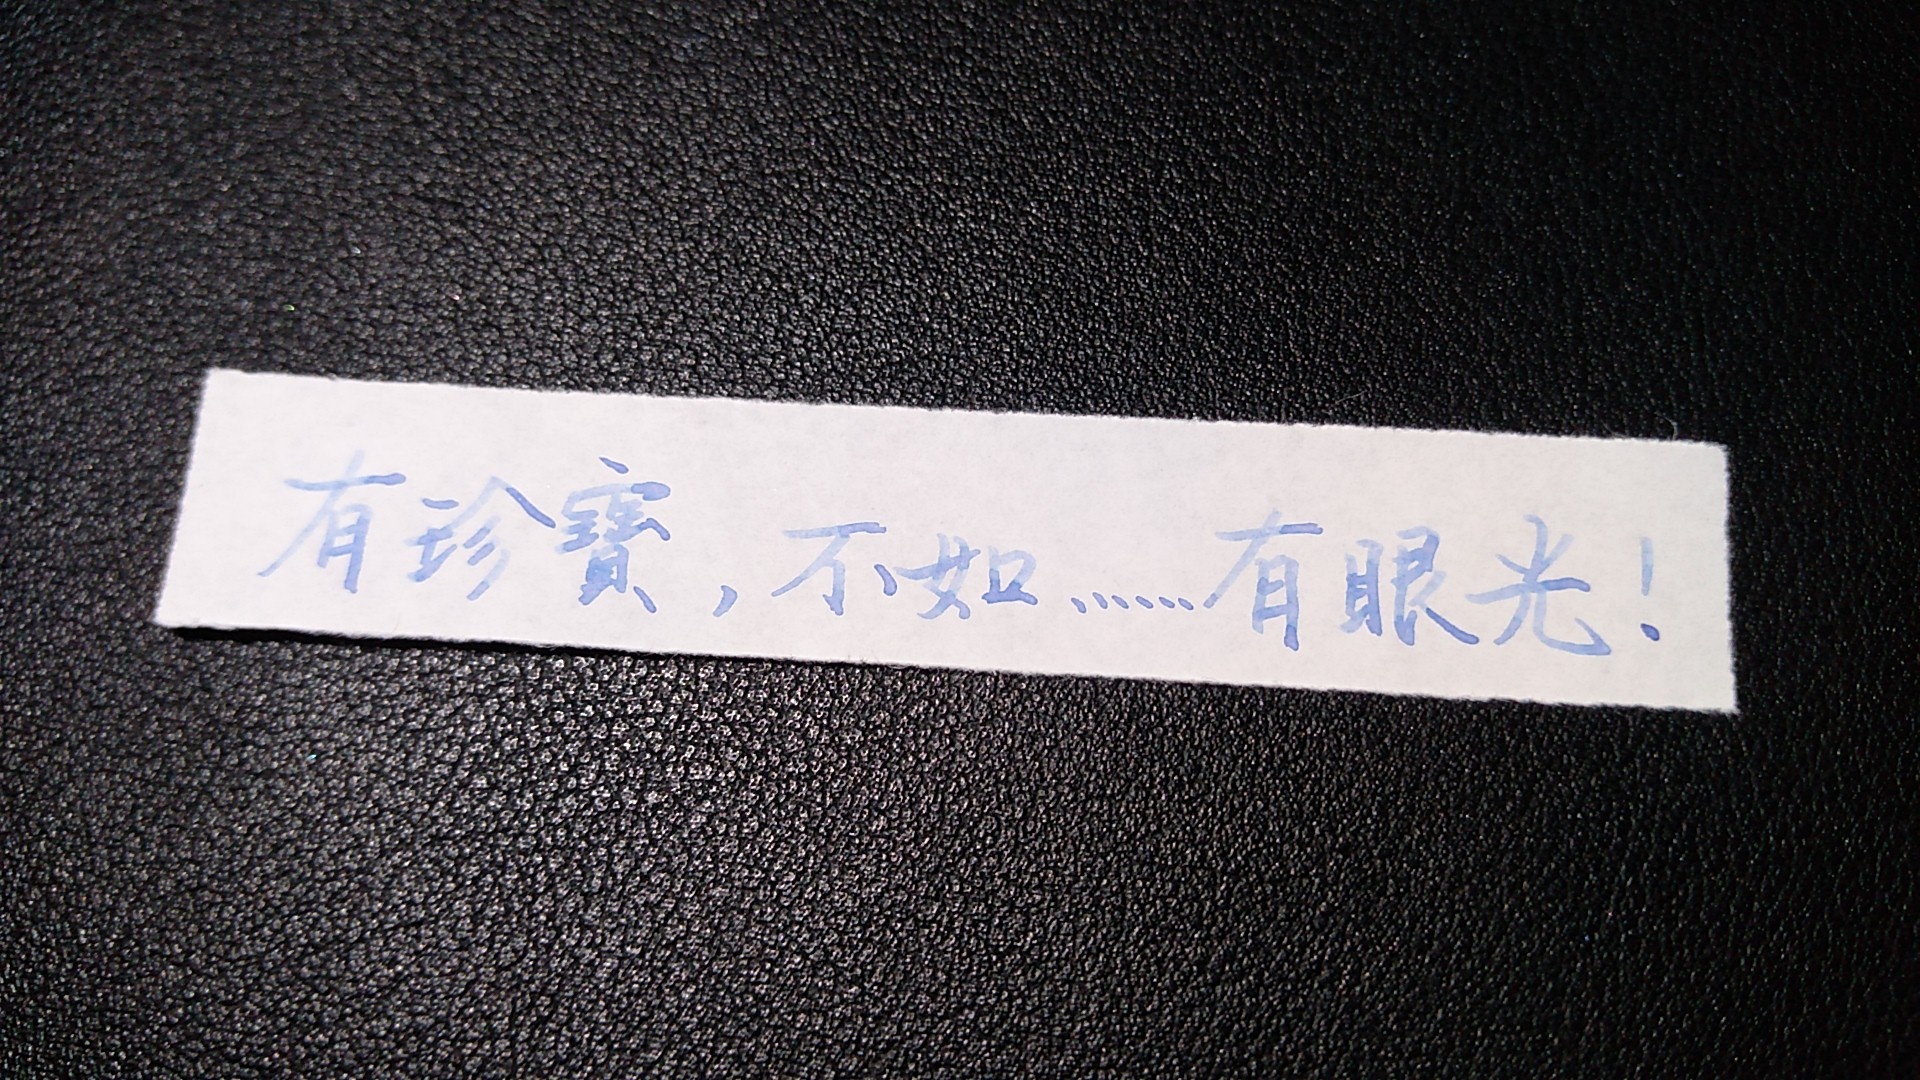 有珍寶，不如……有眼光！